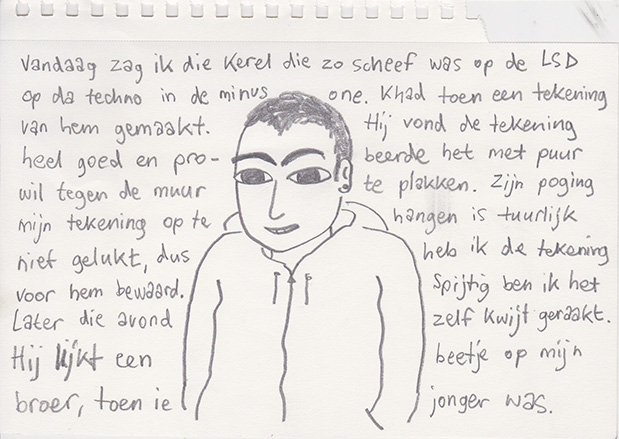 Vandaag zag ik die kerel die zo scheef was op de LSD
op da techno in de minus one. Khad toen een tekening
van hem gemaakt. Hij vond de tekening
heel goed en pro- beerde het met puur
wil tegen de muur te plakken. Zijn poging
mijn tekening op te hangen is tuurlijk
niet gelukt, dus heb ik de tekening
voor hem bewaard. Spijtig ben ik het
Later die avond zelf kwijt geraakt.
Hij lijkt een beetje op mijn
broer, toen ie jonger was.